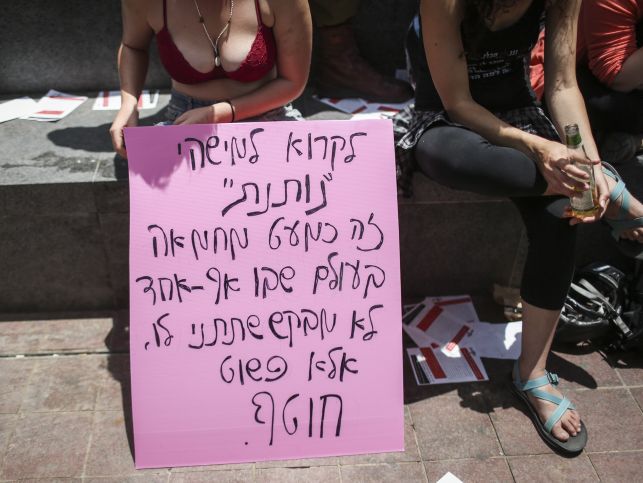 לקרוא למישהי
"נותנת"
זה כמעט מחמאה
בעולם שבו אף-אחד
לא מבקש שתתני לו,
אלא פשוט
חוטף.